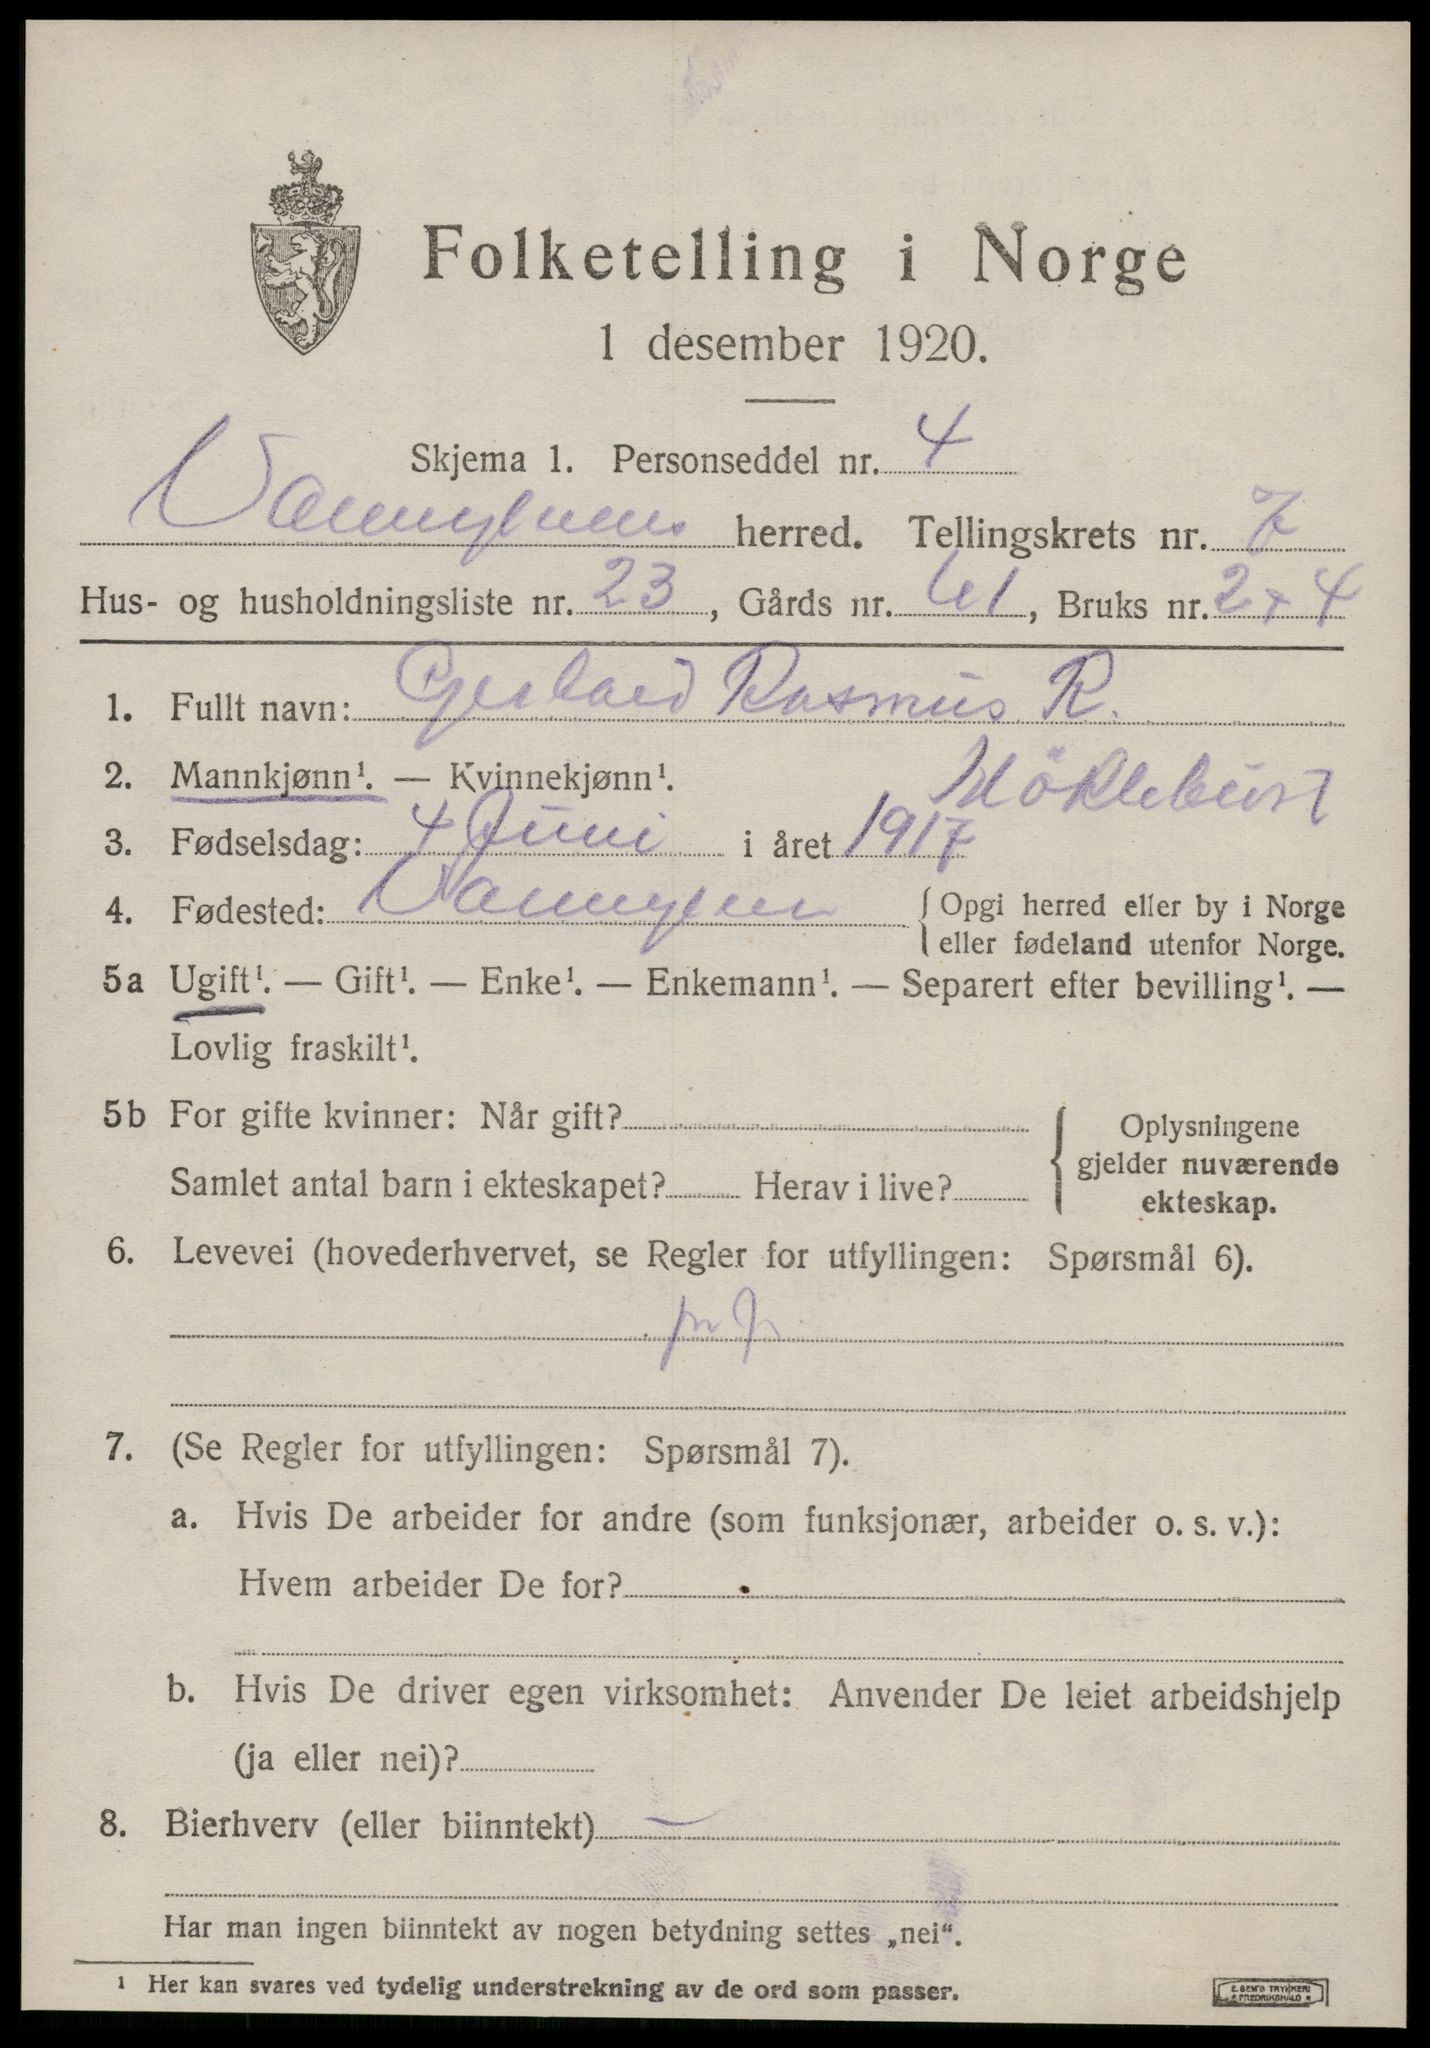 Folketelling i Norge
1 desember 1920.
Skjema 1. Personseddel nr. 4
Vannylvens herred. Tellingskrets nr. 7
Hus- og husholdningsliste nr. 23, Gårds nr. 61, Bruks nr. 2 + 4
1. Fullt navn: Gerhard Rasmus R.
Möklebust
2. Mannkjønn¹. — Kvinnekjønn¹.
3. Fødselsdag: 4 Juni i året 1917
4. Fødested: Vannylven { Opgi herred eller by i Norge
eller fødeland utenfor Norge.
5a Ugift¹. — Gift¹. — Enke¹. — Enkemann¹. — Separert efter bevilling¹. —
Lovlig fraskilt¹.
5b For gifte kvinner: Når gift?
Samlet antal barn i ekteskapet? Herav i live?
{ Oplysningene
gjelder nuværende
ekteskap.
6. Levevei (hovederhvervet, se Regler for utfyllingen: Spørsmål 6).
7. (Se Regler for utfyllingen: Spørsmål 7).
a. Hvis De arbeider for andre (som funksjonær, arbeider o. s. v.):
Hvem arbeider De for?
b. Hvis De driver egen virksomhet: Anvender De leiet arbeidshjelp
(ja eller nei)?
8. Bierhverv (eller biinntekt) —
Har man ingen biinntekt av nogen betydning settes „nei“.
¹ Her kan svares ved tydelig understrekning av de ord som passer.
E. SEM'S TRYKKERI
FREDRIKSHALD